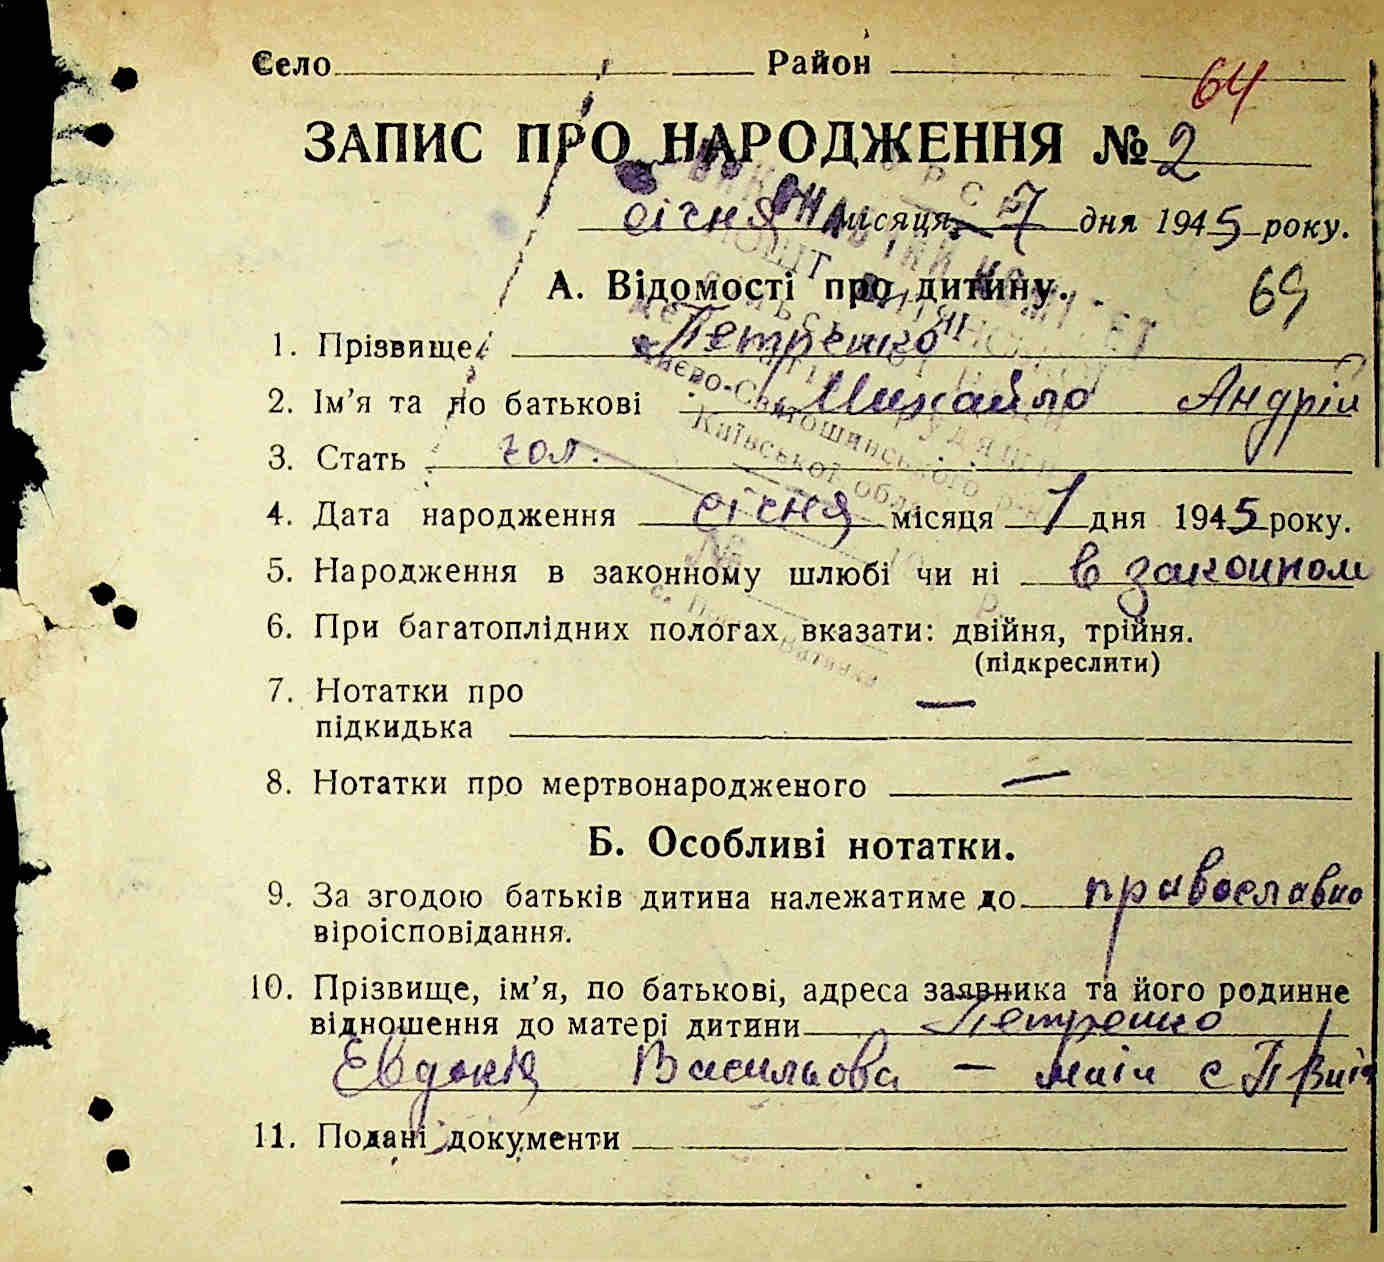 Село Район
64
ЗАПИС ПРО НАРОДЖЕННЯ № 2
січня місяця 7 дня 1945 року.
А. Відомості про дитину.
69
1. Прізвище Петренко
2. Ім’я та по батькові Михайло Андрій
3. Стать чол.
4. Дата народження січня місяця 1 дня 1945 року.
5. Народження в законному шлюбі чи ні в законном
6. При багатоплідних пологах вказати: двійня, трійня.
(підкреслити)
7. Нотатки про
підкидька —
8. Нотатки про мертвонародженого —
Б. Особливі нотатки.
9. За згодою батьків дитина належатиме до православно
віроісповідання.
10. Прізвище, ім’я, по батькові, адреса заявника та його родинне
відношення до матері дитини Петренко
Евдокія Васильова — мати с П
11. Подані документи
ВИКОНАВЧИЙ КОМІТЕТ
Києво-Святошинського р-н
Київської обл